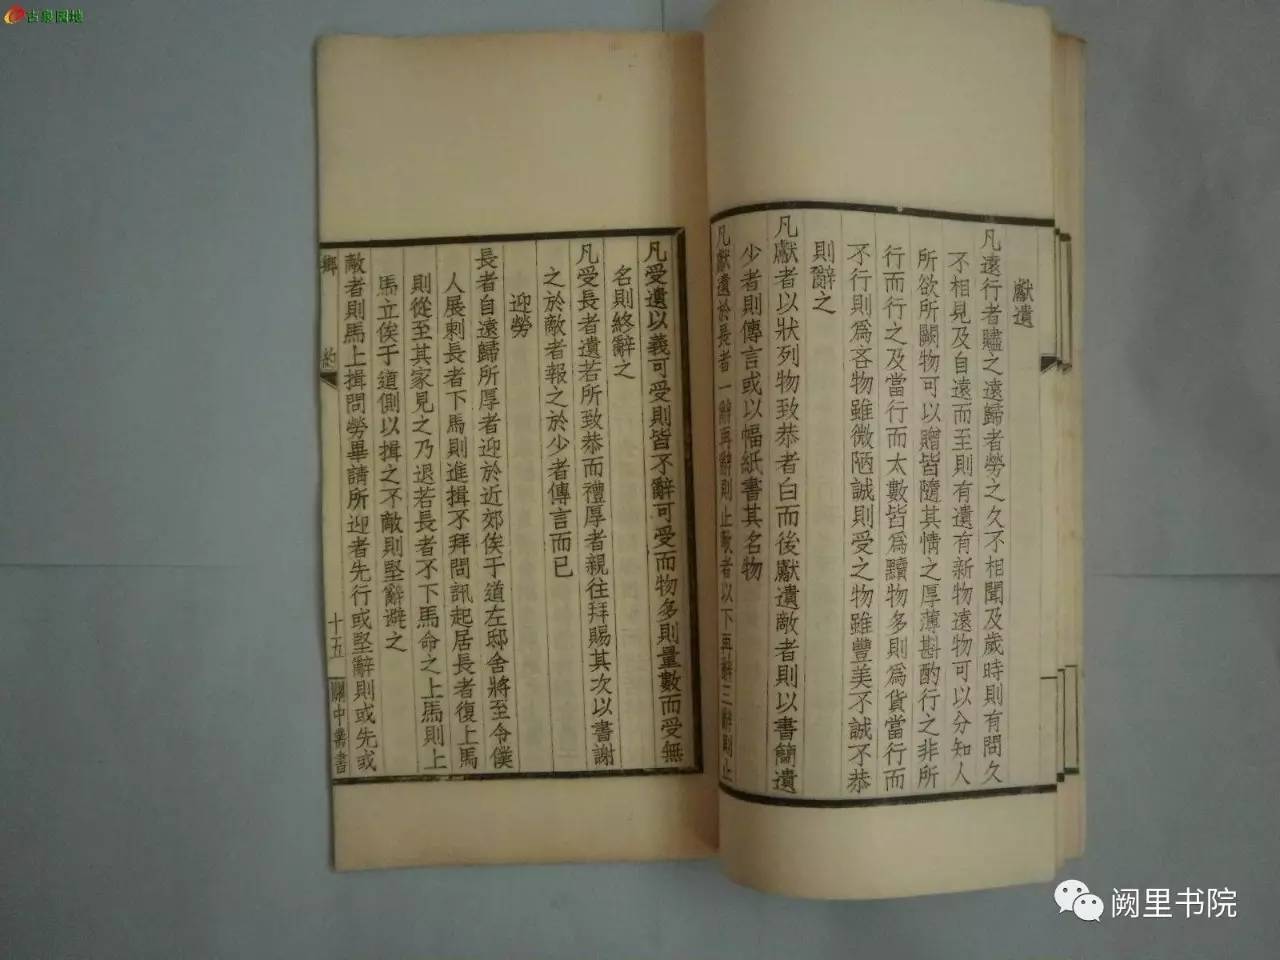 古泉园地
獻遺
凡遠行者贐之遠歸者勞之久不相聞及歲時則有問久
不相見及自遠而至則有遺有新物遠物可以分知人
所欲所闕物可以贈皆隨其情之厚薄斟酌行之非所
行而行之及當行而太數皆為黷物多則為貨當行而
不行則為吝物雖微陋誠則受之物雖豐美不誠不恭
則辭之
凡獻者以狀列物致恭者白而後獻遺敵者則以書簡遺
少者則傳言或以幅紙書其名物
凡獻遺於長者一辭再辭則止敵者以下再辭三辭則止
凡受遺以義可受則皆不辭可受而物多則量數而受無
名則終辭之
凡受長者遺若所致恭而禮厚者親往拜賜其次以書謝
之於敵者報之於少者傳言而已
迎勞
長者自遠歸所厚者迎於近郊俟于道左邸舍將至令僕
人展刺長者下馬則進揖不拜問訊起居長者復上馬
則從至其家見之乃退若長者不下馬命之上馬則上
馬立俟于道側以揖之不敵則堅辭避之
敵者則馬上揖問勞畢請所迎者先行或堅辭則或先或
鄉約
十五
關中叢書
阙里书院